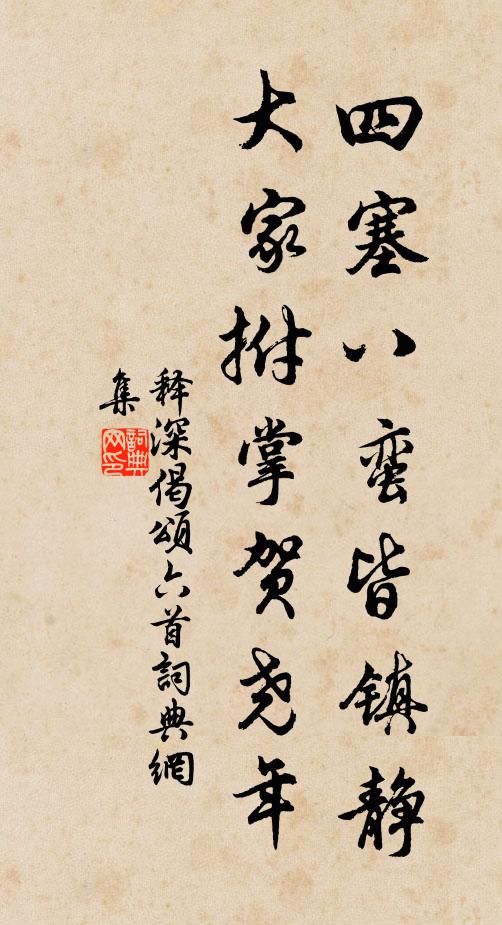 四塞八蛮皆镇静
大家拊掌贺尧年
释深偈頌六首詞典網
集
詞典網印